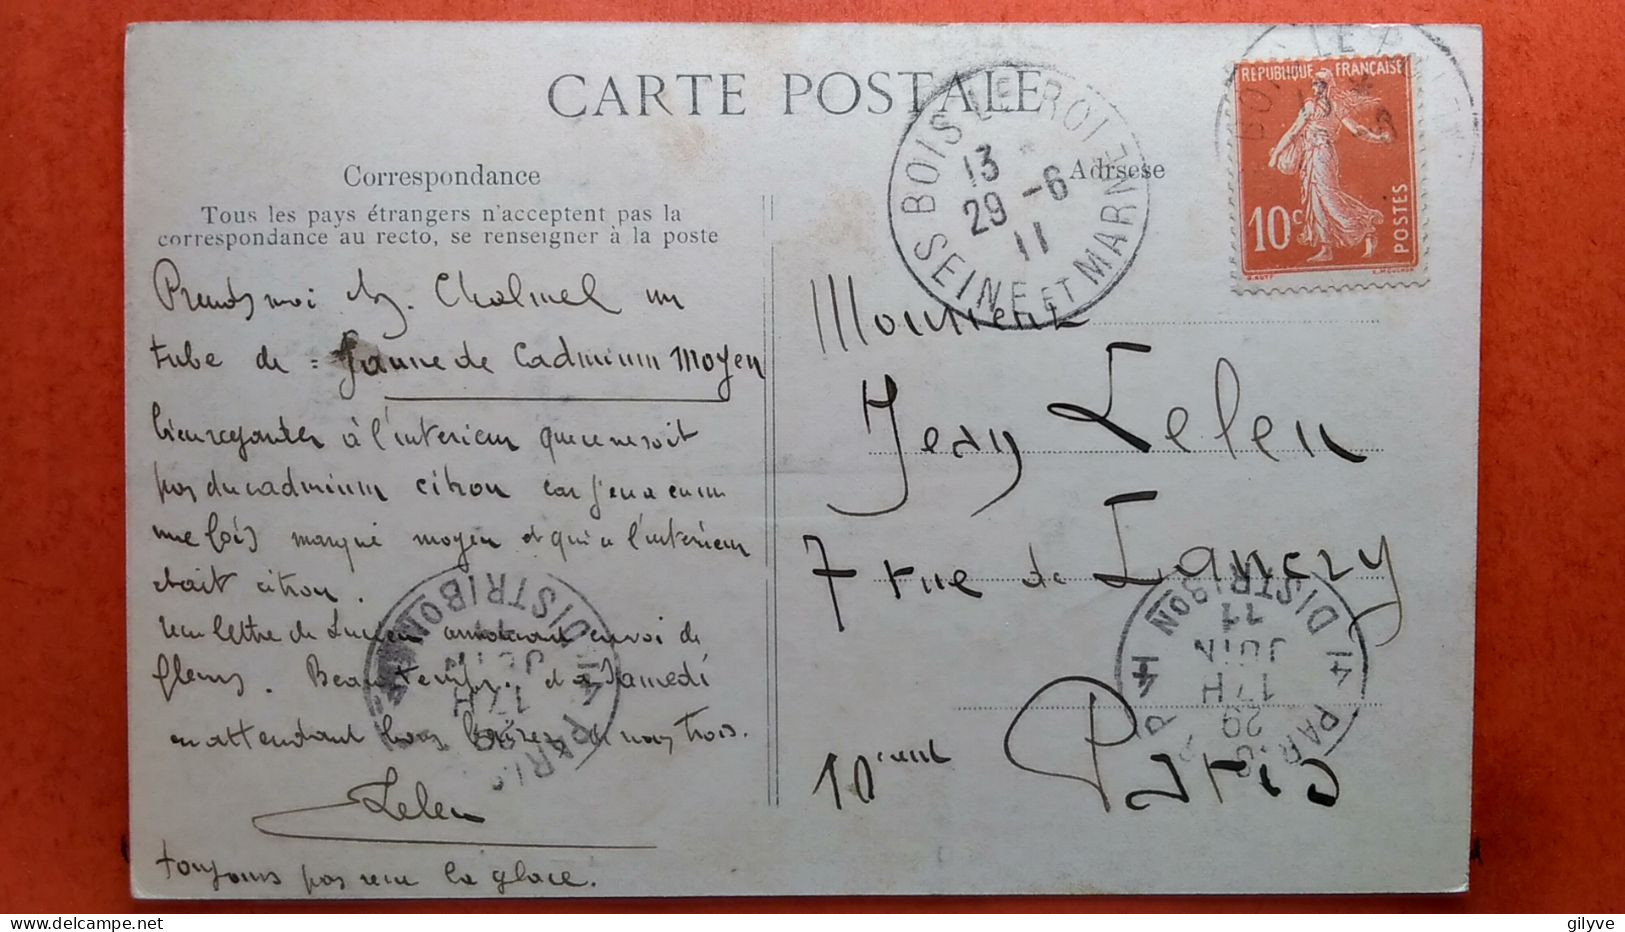 CARTE POSTALE
Correspondance
Adrsese
Tous les pays étrangers n'acceptent pas la
correspondance au recto, se renseigner à la poste
BOIS LE ROI
SEINE ET MARNE
13
29 - 6
11
REPUBLIQUE FRANÇAISE
10c
POSTES
Prends moi chez Chalmel un
tube de = Jaune de Cadmium Moyen
bien regarder à l'interieur que ce ne soit
pas du cadmium citron car j'en ai eu un
une fois marqué moyen et qui a l'intérieur
etait citron.
reçu lettre de Lucien annonçant envoi de
fleurs. Beau temps. et a Samedi
en attendant bons baisers de nous trois.
Lelen
toujours pas reçu la glace.
Monsieur
Jean Lelen
7 rue de Lancry
Paris
10
PARIS 14 DISTRIBON
17H
29
JUIN
11
gilyve